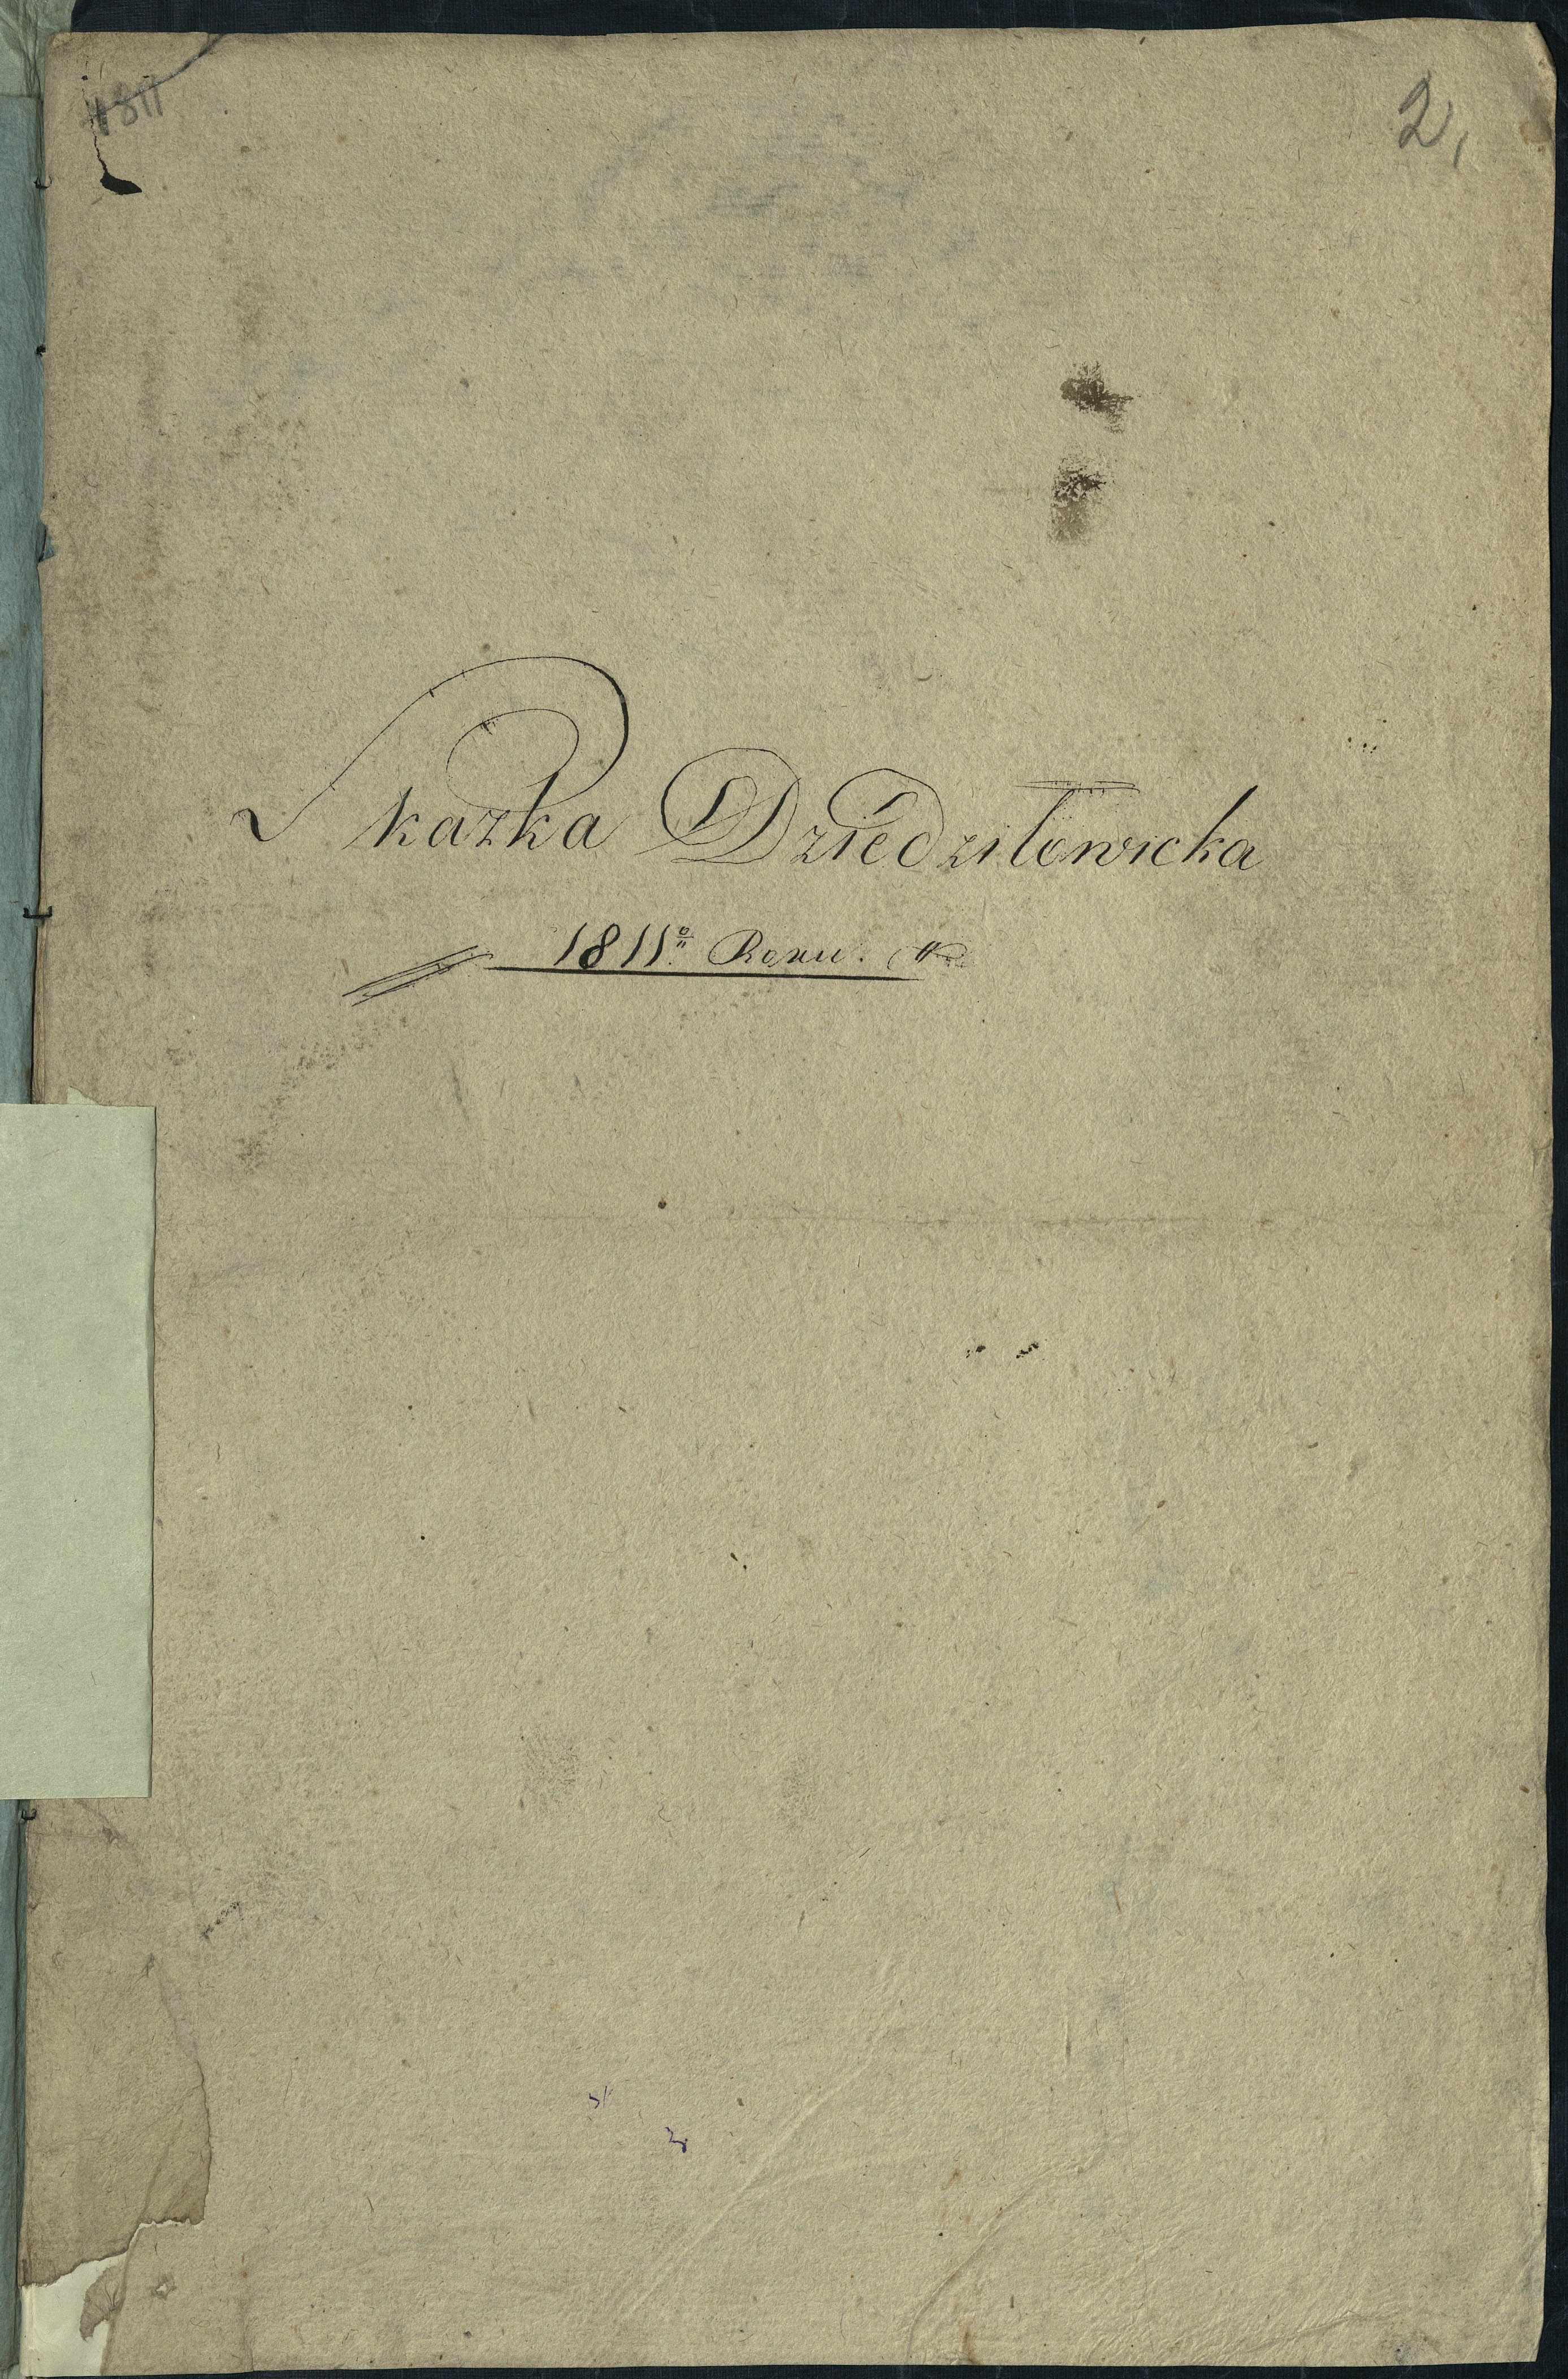 1811
2,
Skazka Dziedziłowicka
1811º Roku.